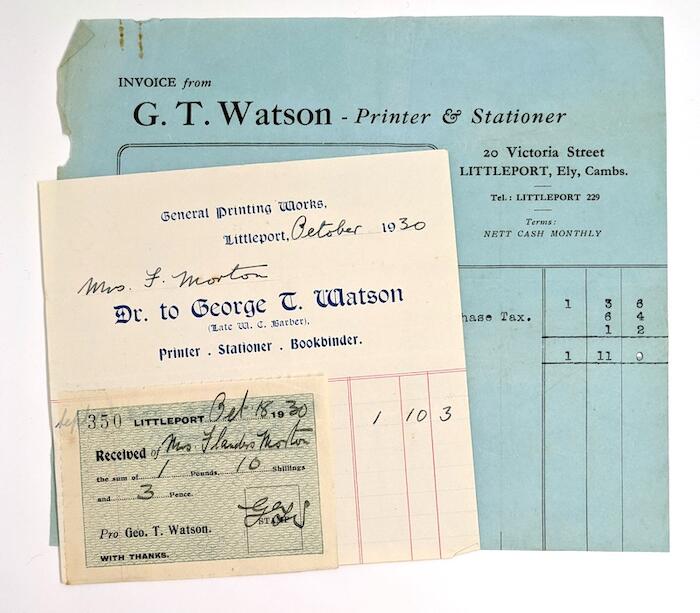 INVOICE from
G. T. Watson - Printer & Stationer
20 Victoria Street
LITTLEPORT, Ely, Cambs.
Tel.: LITTLEPORT 229
Terms:
NETT CASH MONTHLY
1 3 6
hase Tax. 6 4
1 2
1 11 0
General Printing Works,
Littleport, October 1930
Mrs. F. Morton
Dr. to George T. Watson
(Late W. C. Barber),
Printer . Stationer . Bookbinder.
1 10 3
350 LITTLEPORT Oct 18 1930
Received of Mrs. Flanders Morton
the sum of 1 Pounds, 10 Shillings
and 3 Pence.
STAMP
Pro Geo. T. Watson.
WITH THANKS.